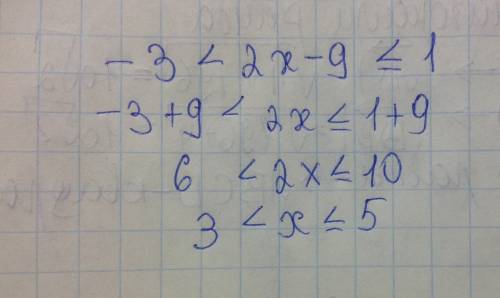 -3 < 2x-9 ≤ 1
-3+9 < 2x ≤ 1+9
6 < 2x ≤ 10
3 < x ≤ 5